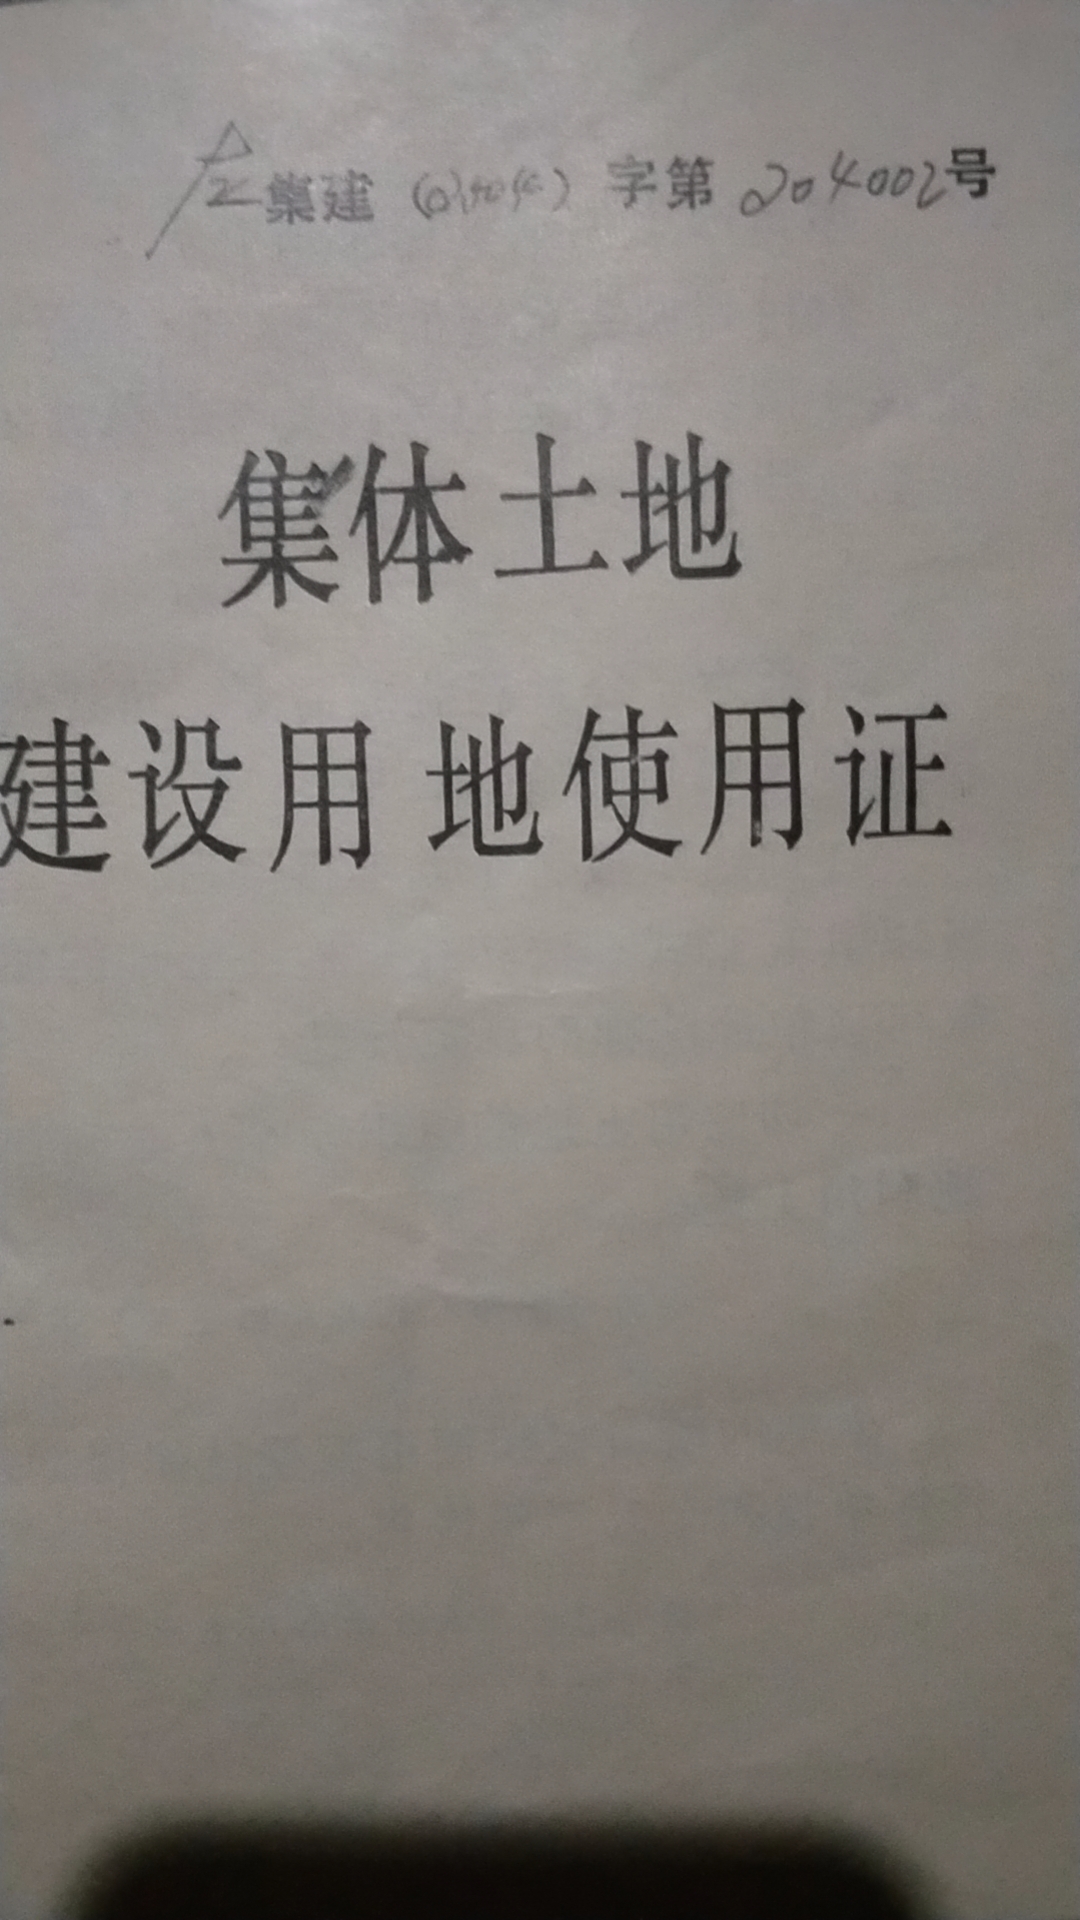 集建（ ）字第204002号
集体土地
建设用地使用证